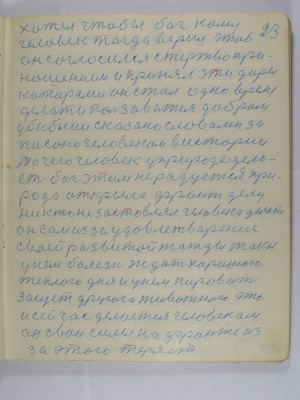 23
хотел чтобы бог кому
человек тагда верил чтоб
он соглосился с жертво при-
ношением и принял эти дары
каторами он стал одно время
делать ползоватся добром
у библии сказано словами за
писоно человеком в истории
то чего человек у природе дело-
ет бог этим не радуется при-
рода открыла фронт делу
никто не застовлял человека делать
он сам из за удовлетварения
своей развитой жажды такая
у нем болезнь ждать хорошого
теплого дня и у нем пировать
защет другога животного это
и сейчас делается человеком
он свои силы на фронте из
за этого теряет